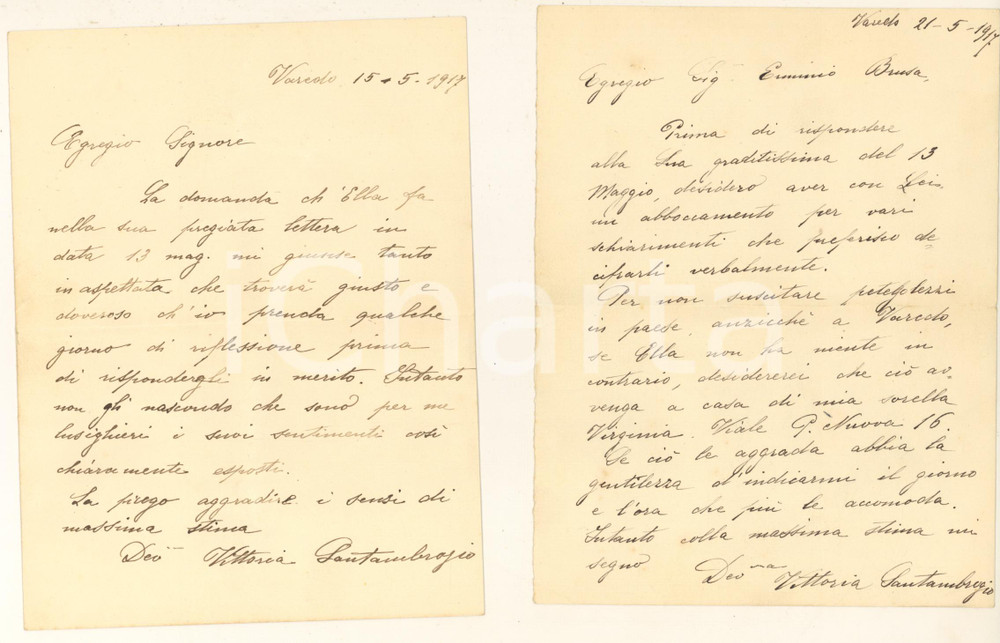 Varedo 15-5-1917
Egregio Signore
La domanda ch'Ella fa
nella sua pregiata lettera in
data 13 mag. mi giunse tanto
inaspettata che troverà giusto e
doveroso ch'io prenda qualche
giorno di riflessione prima
di rispondergli in merito. Intanto
non gli nascondo che sono per me
lusighieri i suoi sentimenti così
chiaramente esposti.
La prego aggradire i sensi di
massima stima
Dev Vittoria Santambrogio
Varedo 21-5-1917
Egregio Sig. Erminio Brusa,
Prima di rispondere
alla Sua graditissima del 13
Maggio, desidero aver con Lei
un abboccamento per vari
schiarimenti che preferisco de=
cifrarli verbalmente.
Per non suscitare pettegolezzi
in paese, anzicchè a Varedo,
se Ella non ha niente in
contrario, desidererei che ciò av=
venga a casa di mia sorella
Virginia. Viale P. Nuova 16.
Se ciò le aggrada abbia la
gentilezza d'indicarmi il giorno
e l'ora che più le accomoda.
Intanto colla massima stima mi
segno
Dev.ma Vittoria Santambrogio
iCharta